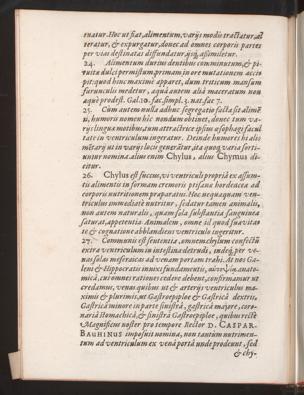 enatur. Hoc ut fiat, alimentum, varijs modis tractatur, at
teratur, & expurgatur, donec ad omnes corporis partes
per vias destinatas diffundatur, ijsq; assimiletur.
24. Alimentum durius dentibus comminutum, & pi-
tuita dulci permistum primam in ore mutationem acci-
pit: quod hinc maximè apparet, dum triticum mansum
furunculis medetur, aquâ autem aliâ maceratum non
aquè prodest. Gal. 10. fac. simpl. 3. nat. fac 7.
25. Cum autem nulla adhuc segregatio facta sit alimē
ti, humoris nomen hic nondum obtinet, donec tum va-
rijs linguæ motibus, tum attractrice ipsius œsophagi facul-
tate in ventriculum ingeratur. Deinde humores bi alis
mē tarij ut in varijs locis generātur, ita quoq; varia sorti-
untur nomina. alius enim Chylus, alius Chymus di-
citur.
26. Chylus est succus, vi ventriculi propriâ ex assum-
tis alimentis in formam cremoris ptisanæ hordeacea ad
corporis nutritionem præparatus. Hoc nequaquam ven-
triculus immediatè nutritur, sedatur tamen animalis,
non autem naturalis, quam sola substantia sanguinea
saturat, appetentia. Animalem, omne id quod suavitat-
te & cognatione abblandiens ventriculo ingeratur.
27. Communis est sententia, omnem chylum confectū
extra ventriculum in intestina detrudi, indeq; per ve-
nas solas mesaraicas ad venam portam trahi. At nos Ga-
leni & Hippocratis innixi fundamentis, anato-
micâ, cui omnes rationes cedere debent, confirmamur ut
credamus, venas quibus ut & arterijs ventriculus ma-
ximis & plurimis, ut Gastroepiploe & Gastricâ dextris,
Gastricâ minore in parte sinistrâ, gastricâ majore, coro-
nariâ stomachicâ, & sinistrâ Gastroepiploe, quibus recte
Magnificus noster pro tempore Rector D. CASPAR.
BAUHINUS imposuit nomina, non tantùm nutrimen-
tum ad ventriculum ex vena portâ unde prodeunt, sed
& chy-